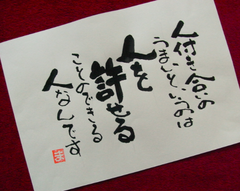 人付き合いの
うまいというのは
人を
許せる
ことのできる
人なんです